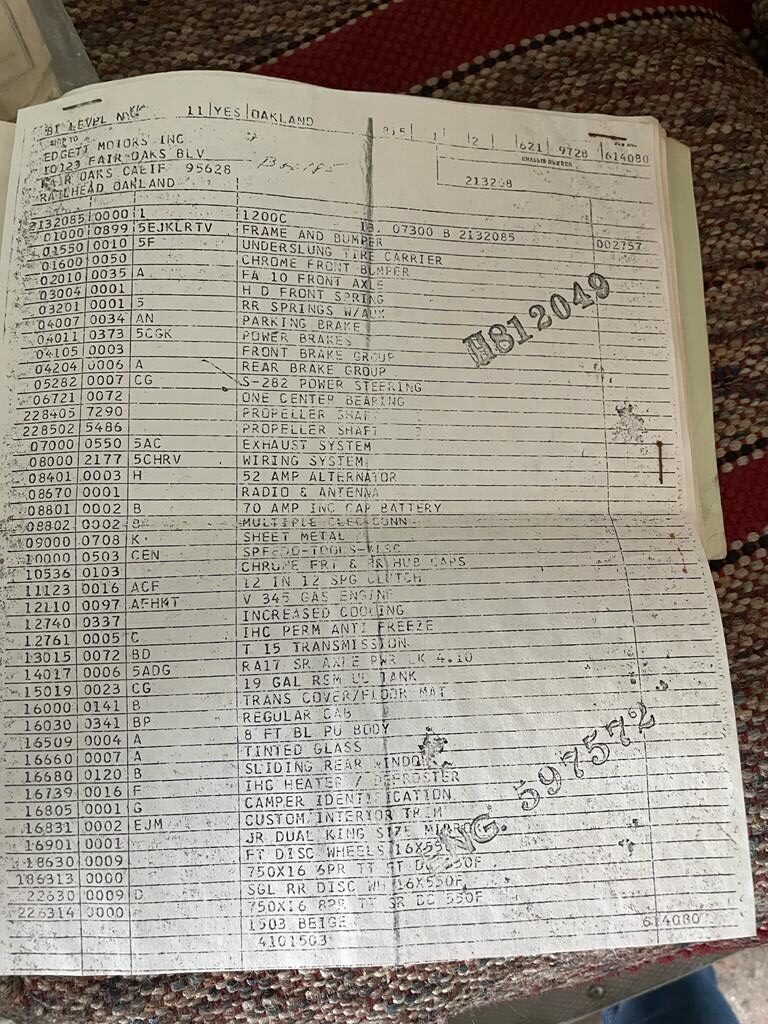 BI LEVEL 11 YES OAKLAND 815 1 2 621 9728 614080
SHIP TO
EDGETT MOTORS INC
10123 FAIR OAKS BLV
FAIR OAKS CALIF 95628
RAILHEAD OAKLAND
CHASSIS NUMBER
213208
2132085 0000 1 1200C 13. 07300 B 2132085
01000 0899 5EJKLRTV FRAME AND BUMPER 002757
01550 0010 5F UNDERSLUNG TIRE CARRIER
01600 0050 CHROME FRONT BUMPER
02010 0035 A FA 10 FRONT AXLE
03004 0001 H D FRONT SPRING
03201 0001 5 RR SPRINGS W/AUX
04007 0034 AN PARKING BRAKE
04011 0373 5CGK POWER BRAKES
04105 0003 FRONT BRAKE GROUP
04204 0006 A REAR BRAKE GROUP
05282 0007 CG S-282 POWER STEERING
06721 0072 ONE CENTER BEARING
228405 7290 PROPELLER SHAFT
228502 5486 PROPELLER SHAFT
07000 0550 5AC EXHAUST SYSTEM
08000 2177 5CHRV WIRING SYSTEM
08401 0003 H 52 AMP ALTERNATOR
08670 0001 RADIO & ANTENNA
08801 0002 B 70 AMP INC CAP BATTERY
08802 0002 MULTIPLE ELEC CONN
09000 0708 K SHEET METAL
10000 0503 CEN SPEEDO-TOOLS-MISC
10536 0103 CHROME FRT & RR HUB CAPS
11123 0016 ACF 12 IN 12 SPG CLUTCH
12110 0097 AFHKT V 345 GAS ENGINE
12740 0337 INCREASED COOLING
12761 0005 C IHC PERM ANTI FREEZE
13015 0072 BD T 15 TRANSMISSION
14017 0006 5ADG RA17 SR AXLE PWR LK 4.10
15019 0023 CG 19 GAL RSM UC TANK
16000 0141 B TRANS COVER/FLOOR MAT
16030 0341 BP REGULAR CAB
16509 0004 A 8 FT BL PU BODY
16660 0007 A TINTED GLASS
16680 0120 B SLIDING REAR WINDOW
16739 0016 F IHC HEATER / DEFROSTER
16805 0001 G CAMPER IDENTIFICATION
16831 0002 EJM CUSTOM INTERIOR TRIM
16901 0001 JR DUAL KING SIZE MIRRO
18630 0009 FT DISC WHEELS 16X55
186313 0000 750X16 6PR TT FT DC 550F
22630 0009 D SGL RR DISC WH 16X550F
226314 0000 750X16 8PR TT SR DC 550F
1503 BEIGE 614080
4101503
H812049
ENG. 597572